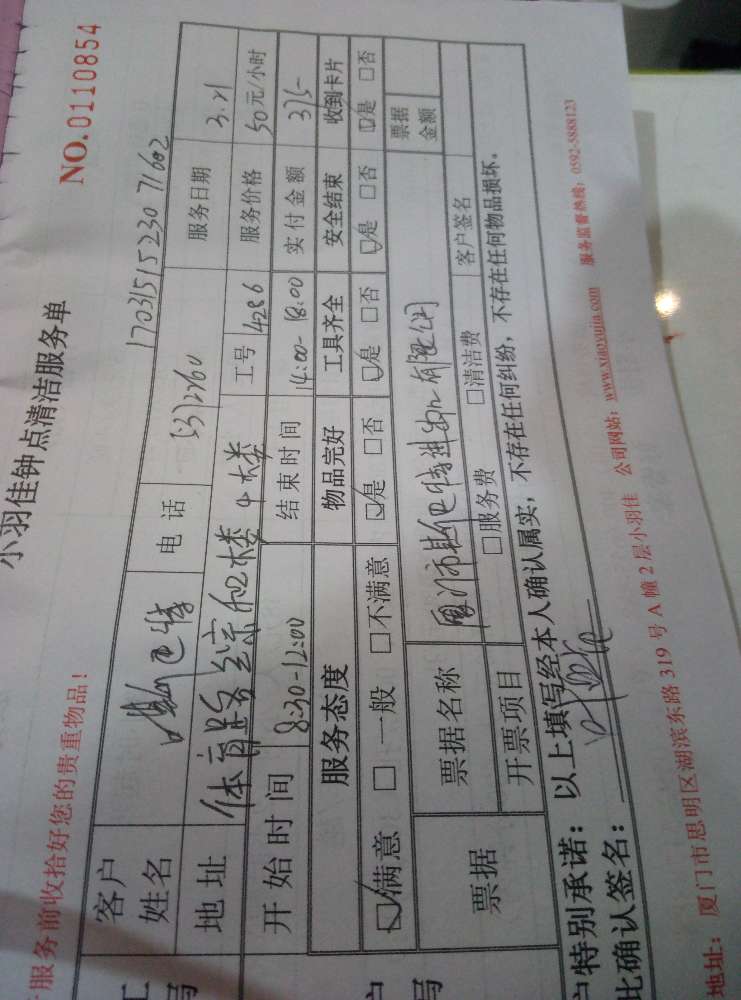 小羽佳钟点清洁服务单
NO.0110854
服务前收拾好您的贵重物品!
17031515230 71602
客户姓名 电话 5372760 服务日期 3.21
地址 体育路 综和楼4楼 工号 4286 服务价格 50元/小时
开始时间 8:30-12:00 结束时间 14:00-18:00 实付金额 375-
服务态度 物品完好 工具齐全 安全结束 收到卡片
☑满意 □一般 □不满意 ☑是 □否 ☑是 □否 ☑是 □否 ☑是 □否
票据 票据名称 厦门市 有限公司 票据金额
开票项目 □服务费 □清洁费 客户签名
户特别承诺: 以上填写经本人确认属实,不存在任何纠纷,不存在任何物品损坏。
比确认签名:
地址: 厦门市思明区湖滨东路 319 号 A 幢 2 层小羽佳 公司网站: www.xiaoyujia.com 服务监督热线: 0592-5888123